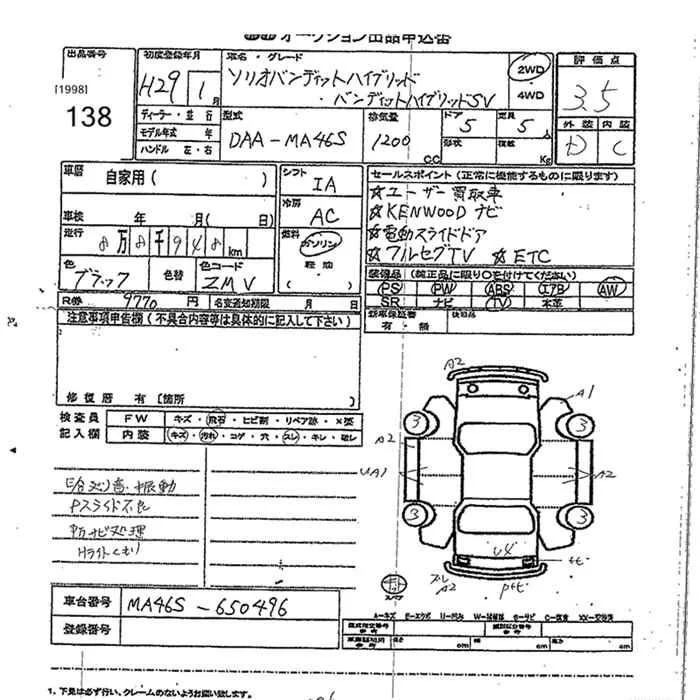 オークション出品申込書
出品番号
[1998]
138
初度登録年月
H29 1月
車名・グレード
ソリオバンディットハイブリッド
・バンディットハイブリッドSV
2WD
4WD
評価点
3.5
外装 内装
D C
ディーラー・並行
モデル年式 年
ハンドル 左・右
型式
DAA-MA46S
排気量
1200
CC
ドア
5
定員
5人
形状
積載
Kg
車歴
自家用( )
車検 年 月( 日)
走行
8万8千948km
色
ブラック
色替
色コード
ZMV
シフト
IA
冷房
AC
燃料
ガソリン
軽油
( )
セールスポイント(正常に機能するものに限ります)
☆ユーザー買取車
☆KENWOODナビ
☆電動スライドドア
☆フルセグTV ☆ETC
装備品(純正品に限り○を付けてください)
PS PW ABS エアB AW
SR ナビ TV 本革
新車保証書
有・無
後日品
R券 9770円
名変通知期限 月 日
注意事項申告欄(不具合内容等は具体的に記入して下さい)
修復歴 有〔箇所 〕
検査員
記入欄
FW キズ・飛石・ヒビ割・リペア跡・×要
内装 キズ・汚れ・コゲ・穴・スレ・キレ・破レ
Pスライド不良
Hライトくもり
A2
A1
3
3
A2
UA1
A2
3
3
U4
スレ
A2
スペア
車台番号
MA46S-650496
登録番号
A-キズ E-エクボ U-凹み W-補修跡 S-サビ C-腐食 XX-交換済
長さ cm 幅 cm 高さ cm
1、下見は必ず行い、クレームのないようお願い致します。